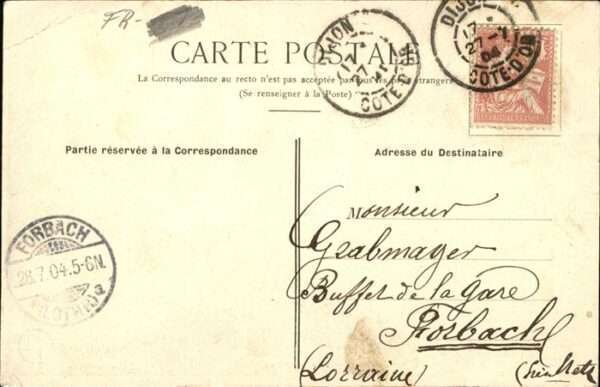 FR-
DIJON
17
27-7
04
COTE-D'OR
DIJON
17
27-7
04
COTE-D'OR
CARTE POSTALE
La Correspondance au recto n'est pas acceptée par tous les pays étrangers
(Se renseigner à la Poste)
Partie réservée à la Correspondance
Adresse du Destinataire
Monsieur
Grabmayer
Buffet de la Gare
Forbach
(Lorraine)
FORBACH
28.7.04.5-6N.
(LOTHR)